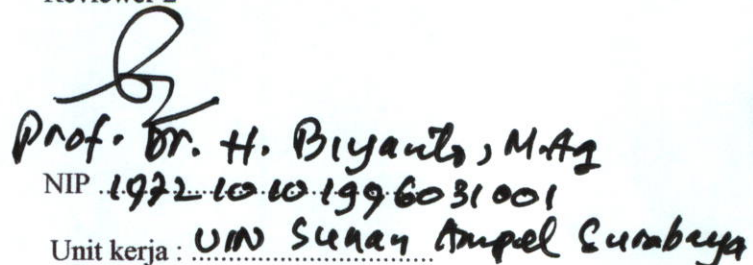 Reviewer 2
Prof. Dr. H. Biyanto, M.Ag
NIP 197210101996031001
Unit kerja : UIN Sunan Ampel Surabaya